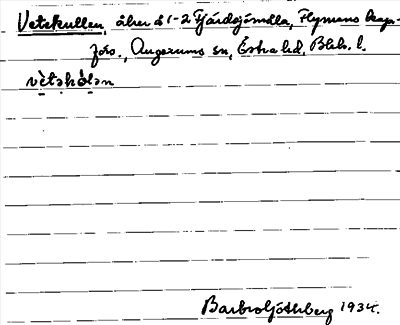 Vetekullen, åker å 1-2 Fjärdsjömåla, Flymens kap-
förs., Augerums sn, Östra hd, Blek. l.
vètəkɵ̀lən
Barbro Göthberg 1934.